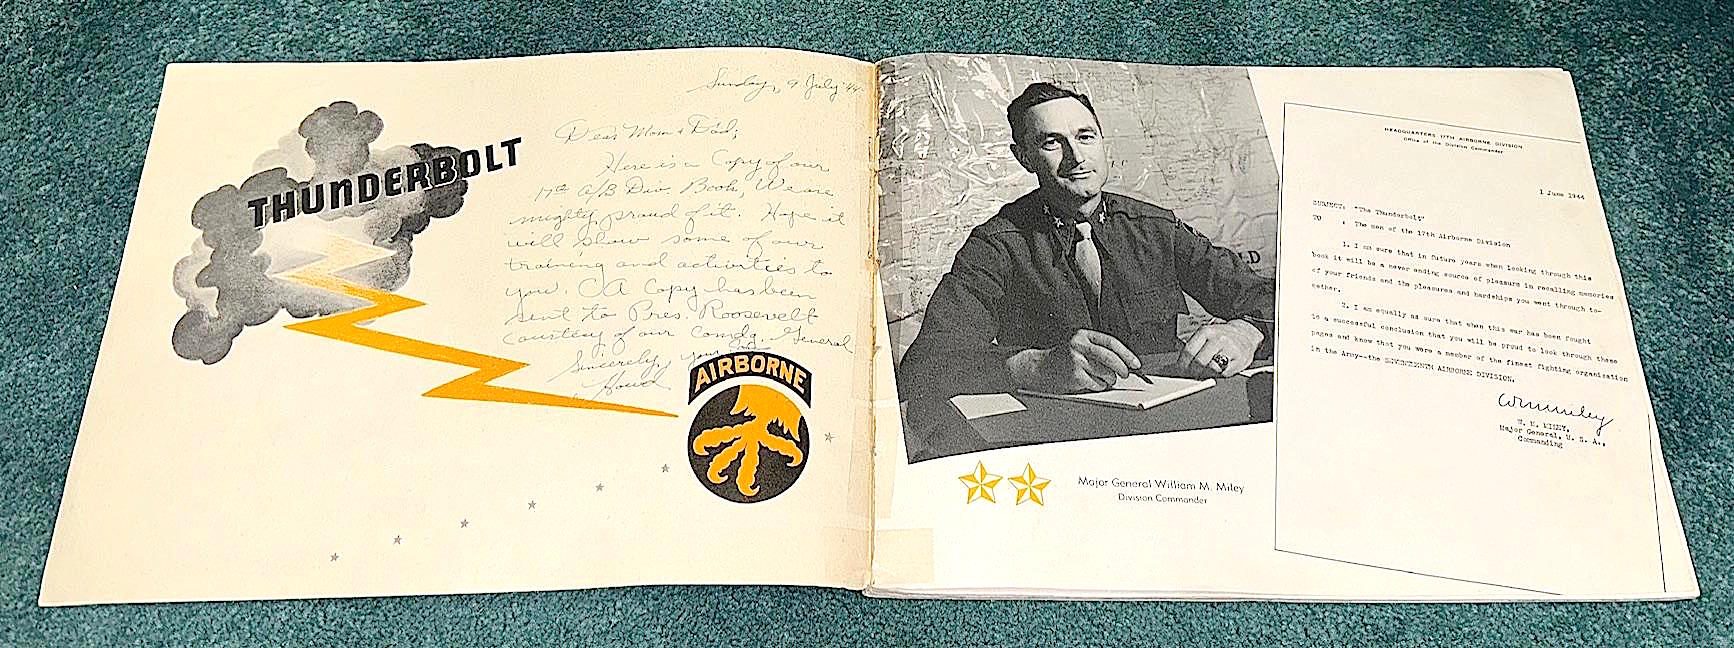 THUNDERBOLT
Sunday, 9 July '44
Dear Mom & Dad;
Here is a Copy of our
17th A/B Div. Book, We are
mighty proud of it. Hope it
will show some of our
training and activities to
you. A Copy has been
sent to Pres. Roosevelt
courtesy of our Comdg. General
Sincerely, your
AIRBORNE
LD
Major General William M. Miley
Division Commander
HEADQUARTERS 17TH AIRBORNE DIVISION
Office of the Division Commander
1 June 1944
SUBJECT: "The Thunderbolt"
TO : The men of the 17th Airborne Division
1. I am sure that in future years when looking through this
book it will be a never ending source of pleasure in recalling memories
of your friends and the pleasures and hardships you went through to-
gether.
2. I am equally as sure that when this war has been fought
to a successful conclusion that you will be proud to look through these
pages and know that you were a member of the finest fighting organization
in the Army--the SEVENTEENTH AIRBORNE DIVISION.
W M Miley
W. M. MILEY,
Major General, U. S. A.,
Commanding